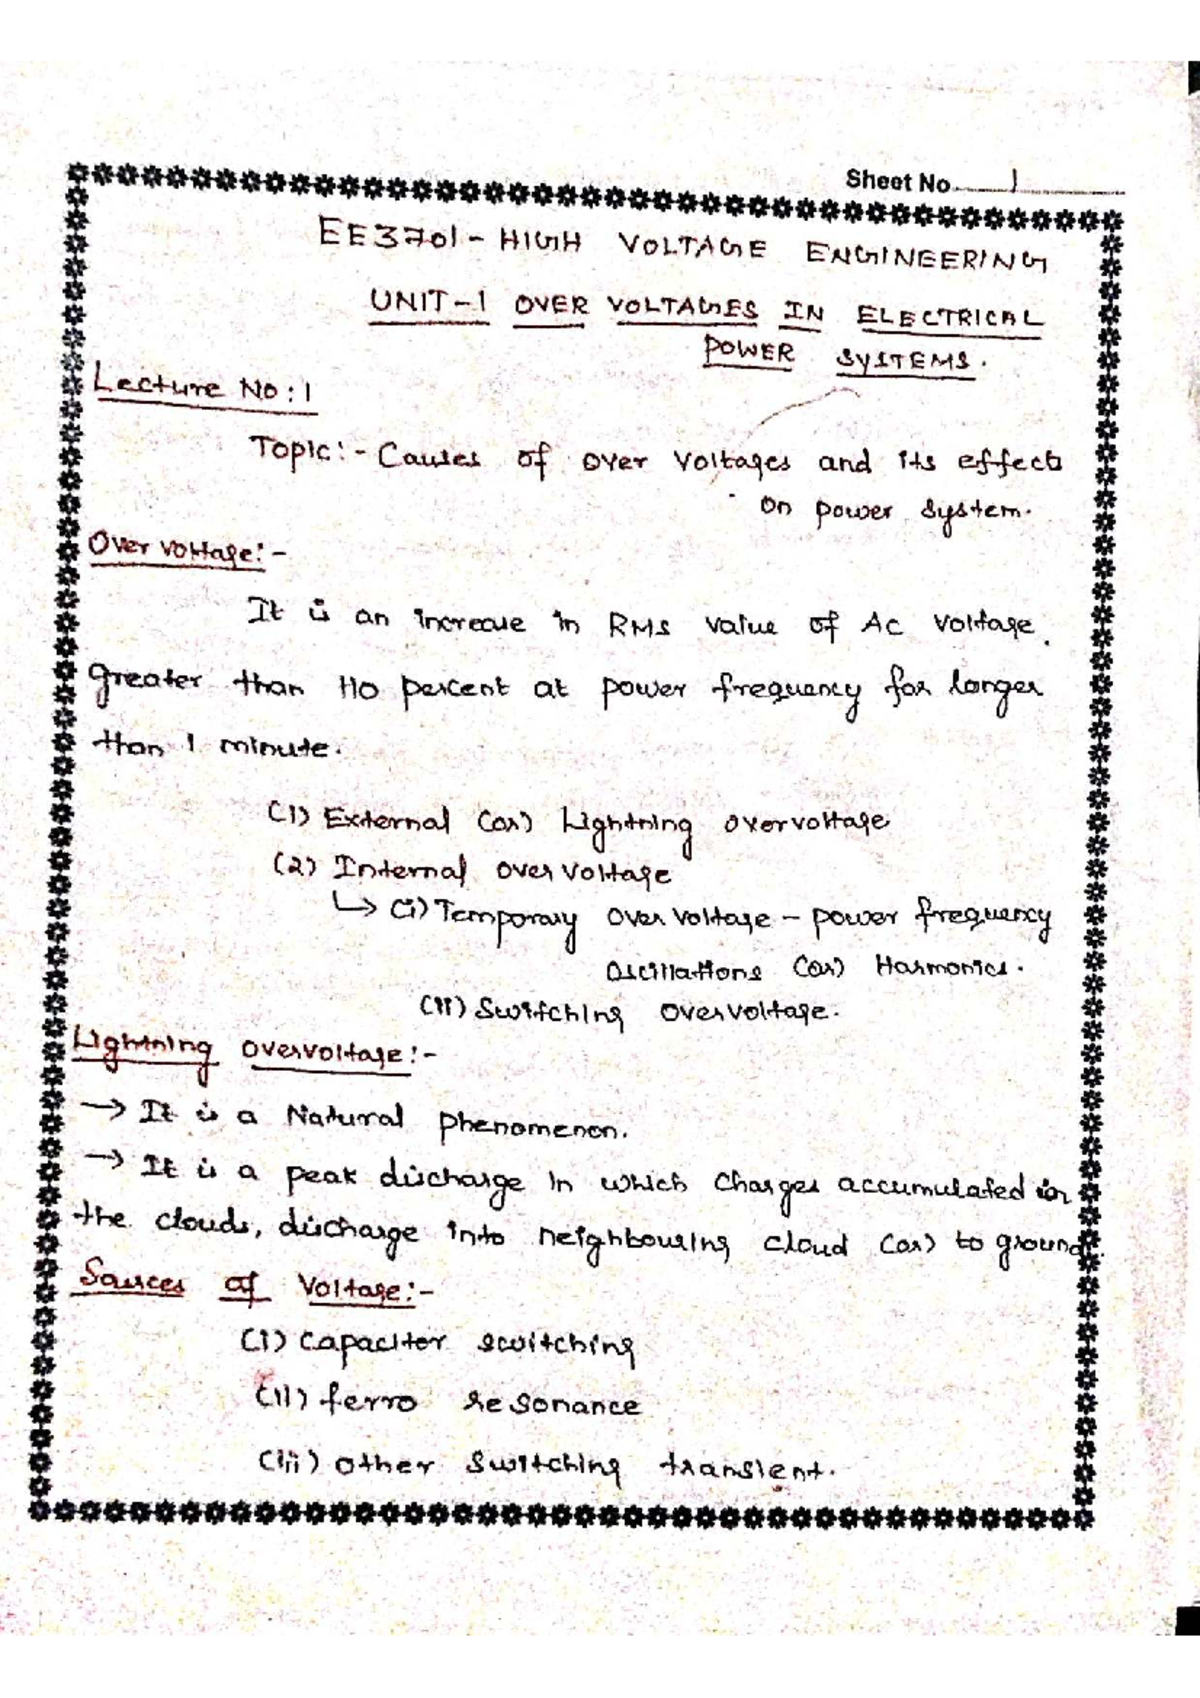 Sheet No. 1
EE3701 - HIGH VOLTAGE ENGINEERING
UNIT-1 OVER VOLTAGES IN ELECTRICAL
POWER SYSTEMS.
Lecture No: 1
Topic:- Causes of over voltages and its effects
on power system.
Over voltage:-
It is an increase in RMS value of Ac voltage
greater than 110 percent at power frequency for longer
than 1 minute.
(1) External (or) Lightning overvoltage
(2) Internal over voltage
↳ (i) Temporary over voltage - power frequency
oscillations (or) Harmonics.
(ii) Switching overvoltage.
Lightning overvoltage:-
→ It is a Natural phenomenon.
→ It is a peak discharge in which charges accumulated in
the clouds, discharge into neighbouring cloud (or) to ground.
Sources of Voltage:-
(i) capacitor switching
(ii) ferro resonance
(iii) other switching transient.